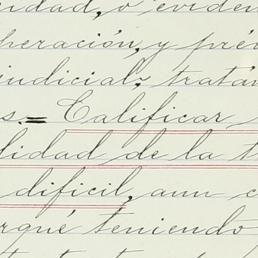 idad, o eviden
peración, y pré
judicial; tratán
s.= Calificar
lidad de la t
dificil, aun c
rqué teniendo